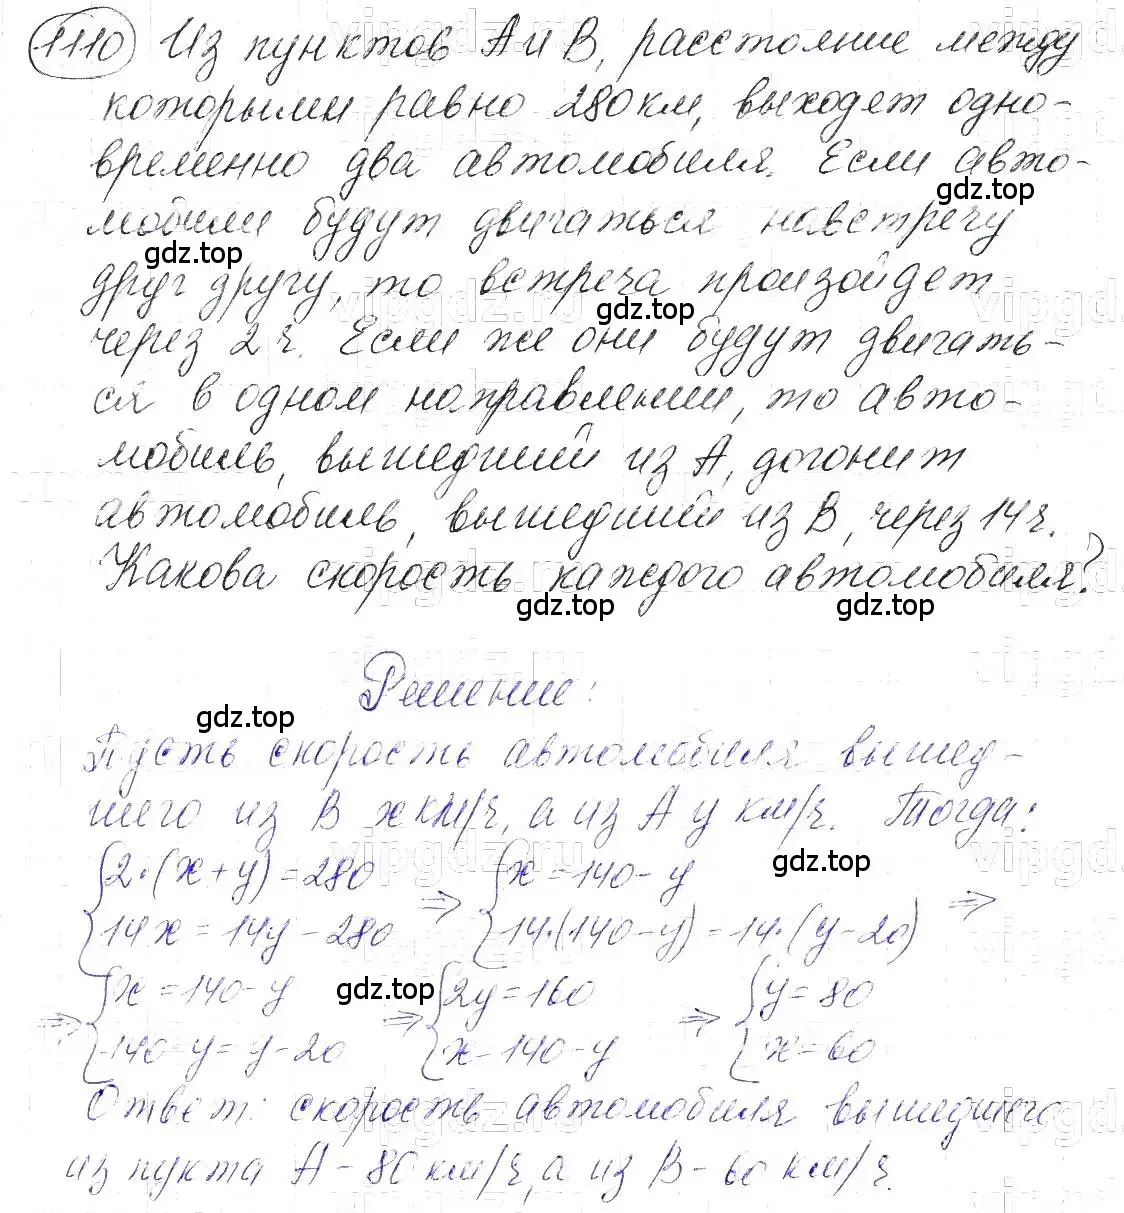 1110 Из пунктов А и В, расстояние между
которыми равно 280 км, выходят одно-
временно два автомобиля. Если авто-
gdz.top
мобили будут двигаться навстречу
gdz.top
друг другу, то встреча произойдет
gdz.top
через 2 ч. Если же они будут двигать-
ся в одном направлении, то авто-
мобиль, вышедший из А, догонит
автомобиль, вышедший из В, через 14 ч.
Какова скорость каждого автомобиля?
gdz.top gdz.top
Решение:
gdz.top
Пусть скорость автомобиля вышед-
шего из В х км/ч, а из А у км/ч. Тогда:
gdz.top
{2·(х+у)=280 => {х=140-у =>
{14х=14у-280 {14·(140-у)=14·(у-20)
gdz.top
=> {х=140-у => {2у=160 => {у=80
{140-у=у-20 {х=140-у {х=60
Ответ: скорость автомобиля вышедшего
из пункта А - 80 км/ч, а из В - 60 км/ч.